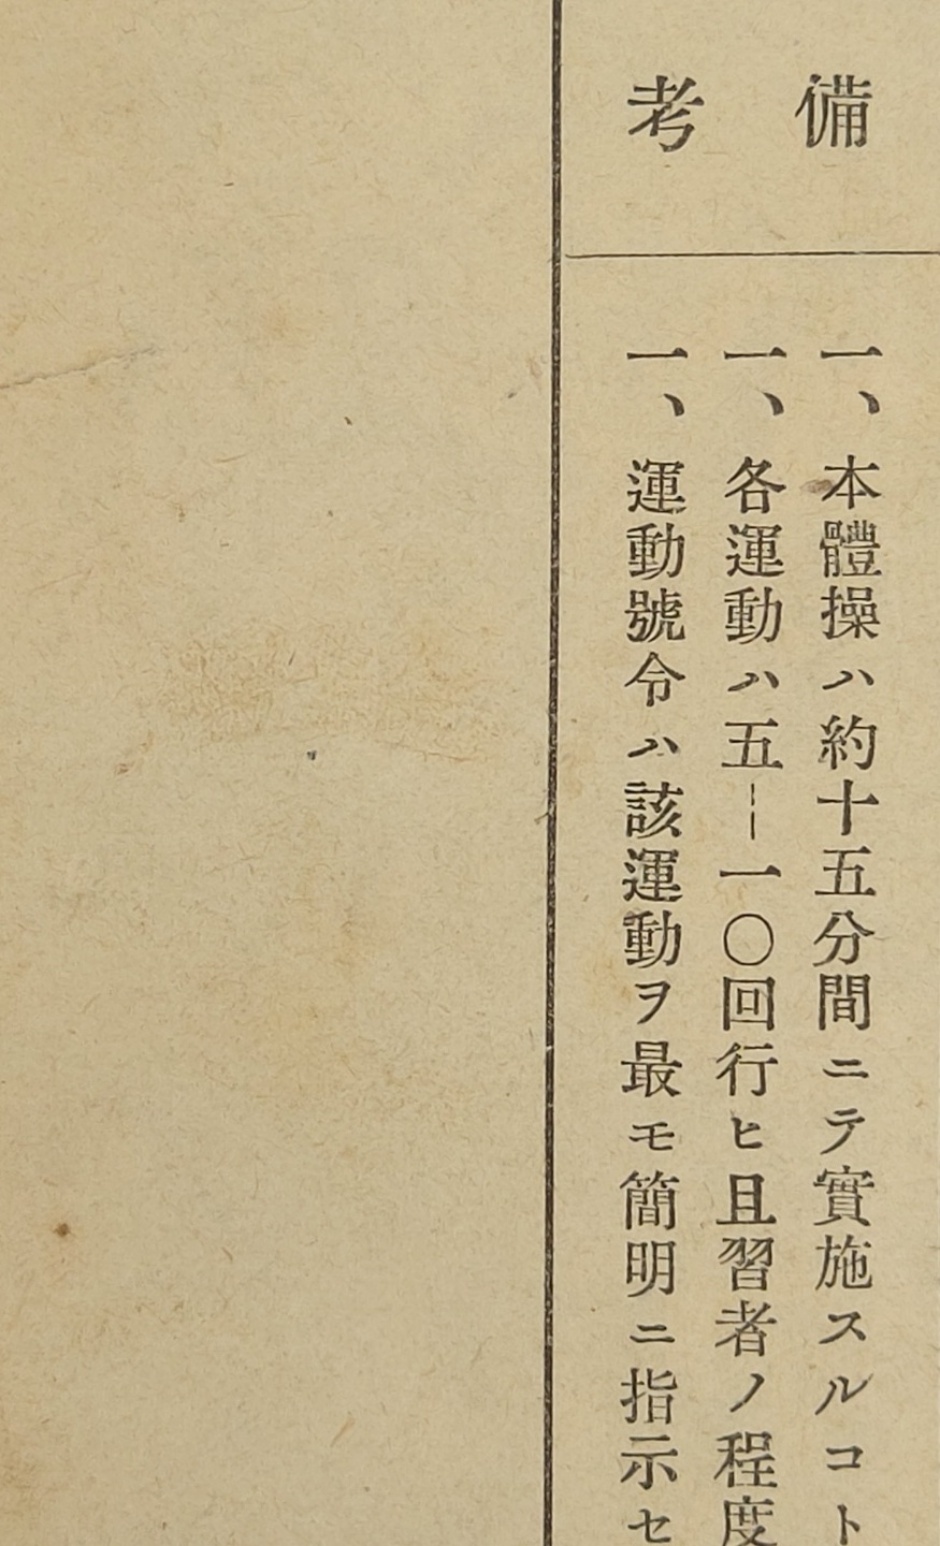 備考
一、本體操ハ約十五分間ニテ實施スルコト
一、各運動ハ五――一〇回行ヒ且習者ノ程度
一、運動號令ハ該運動ヲ最モ簡明ニ指示セ